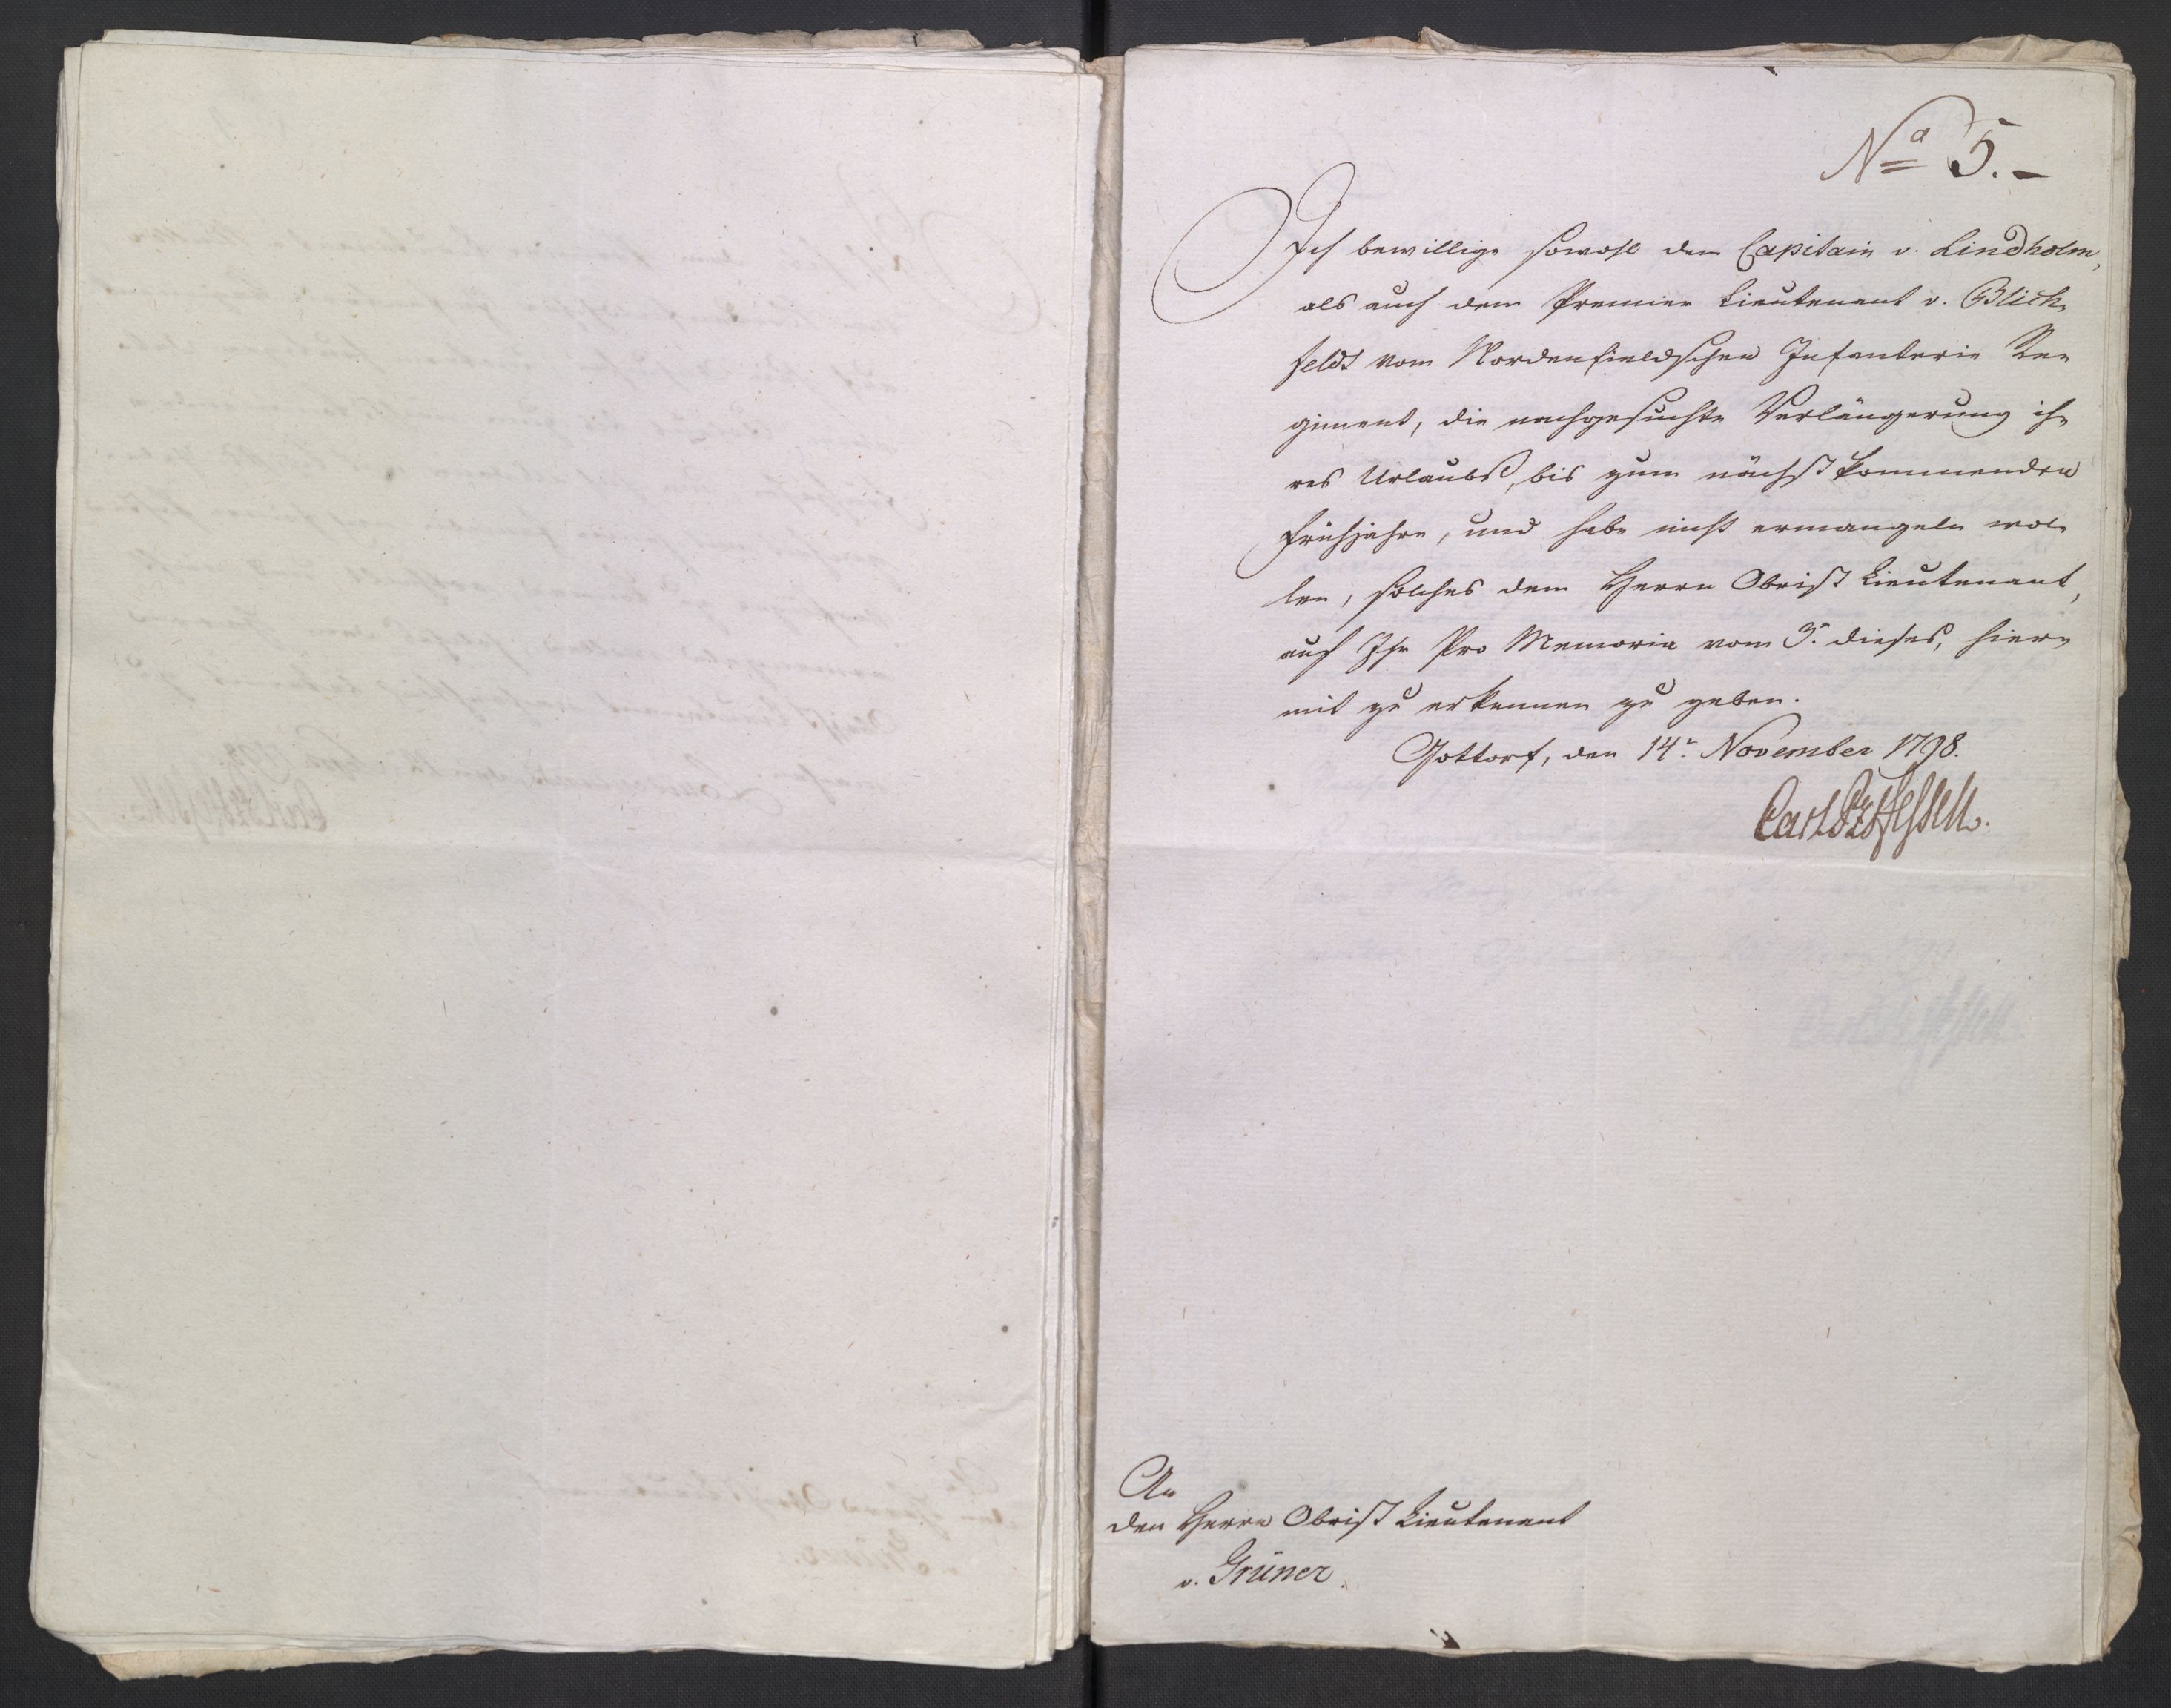 No 5.-
Ich bewillige sowohl dem Capitain v. Lindholm,
als auch dem Premier Lieutenant v. Blich-
feldt vom Nordenfieldschen Infanterie Re-
giment, die nachgesuchte Verlängerung ih-
res Urlaubs, bis zum nächstkommenden
Frühjahre, und habe nicht ermangeln wol-
len, solches dem Herrn Obrist Lieutenant,
auf Ihr Pro Memoria vom 3. dieses, hier-
mit zu erkennen zu geben.
Gottorf, den 14t November 1798.
Carl Pz Hessen.
An
den Herrn Obrist Lieutenant
v. Grüner.